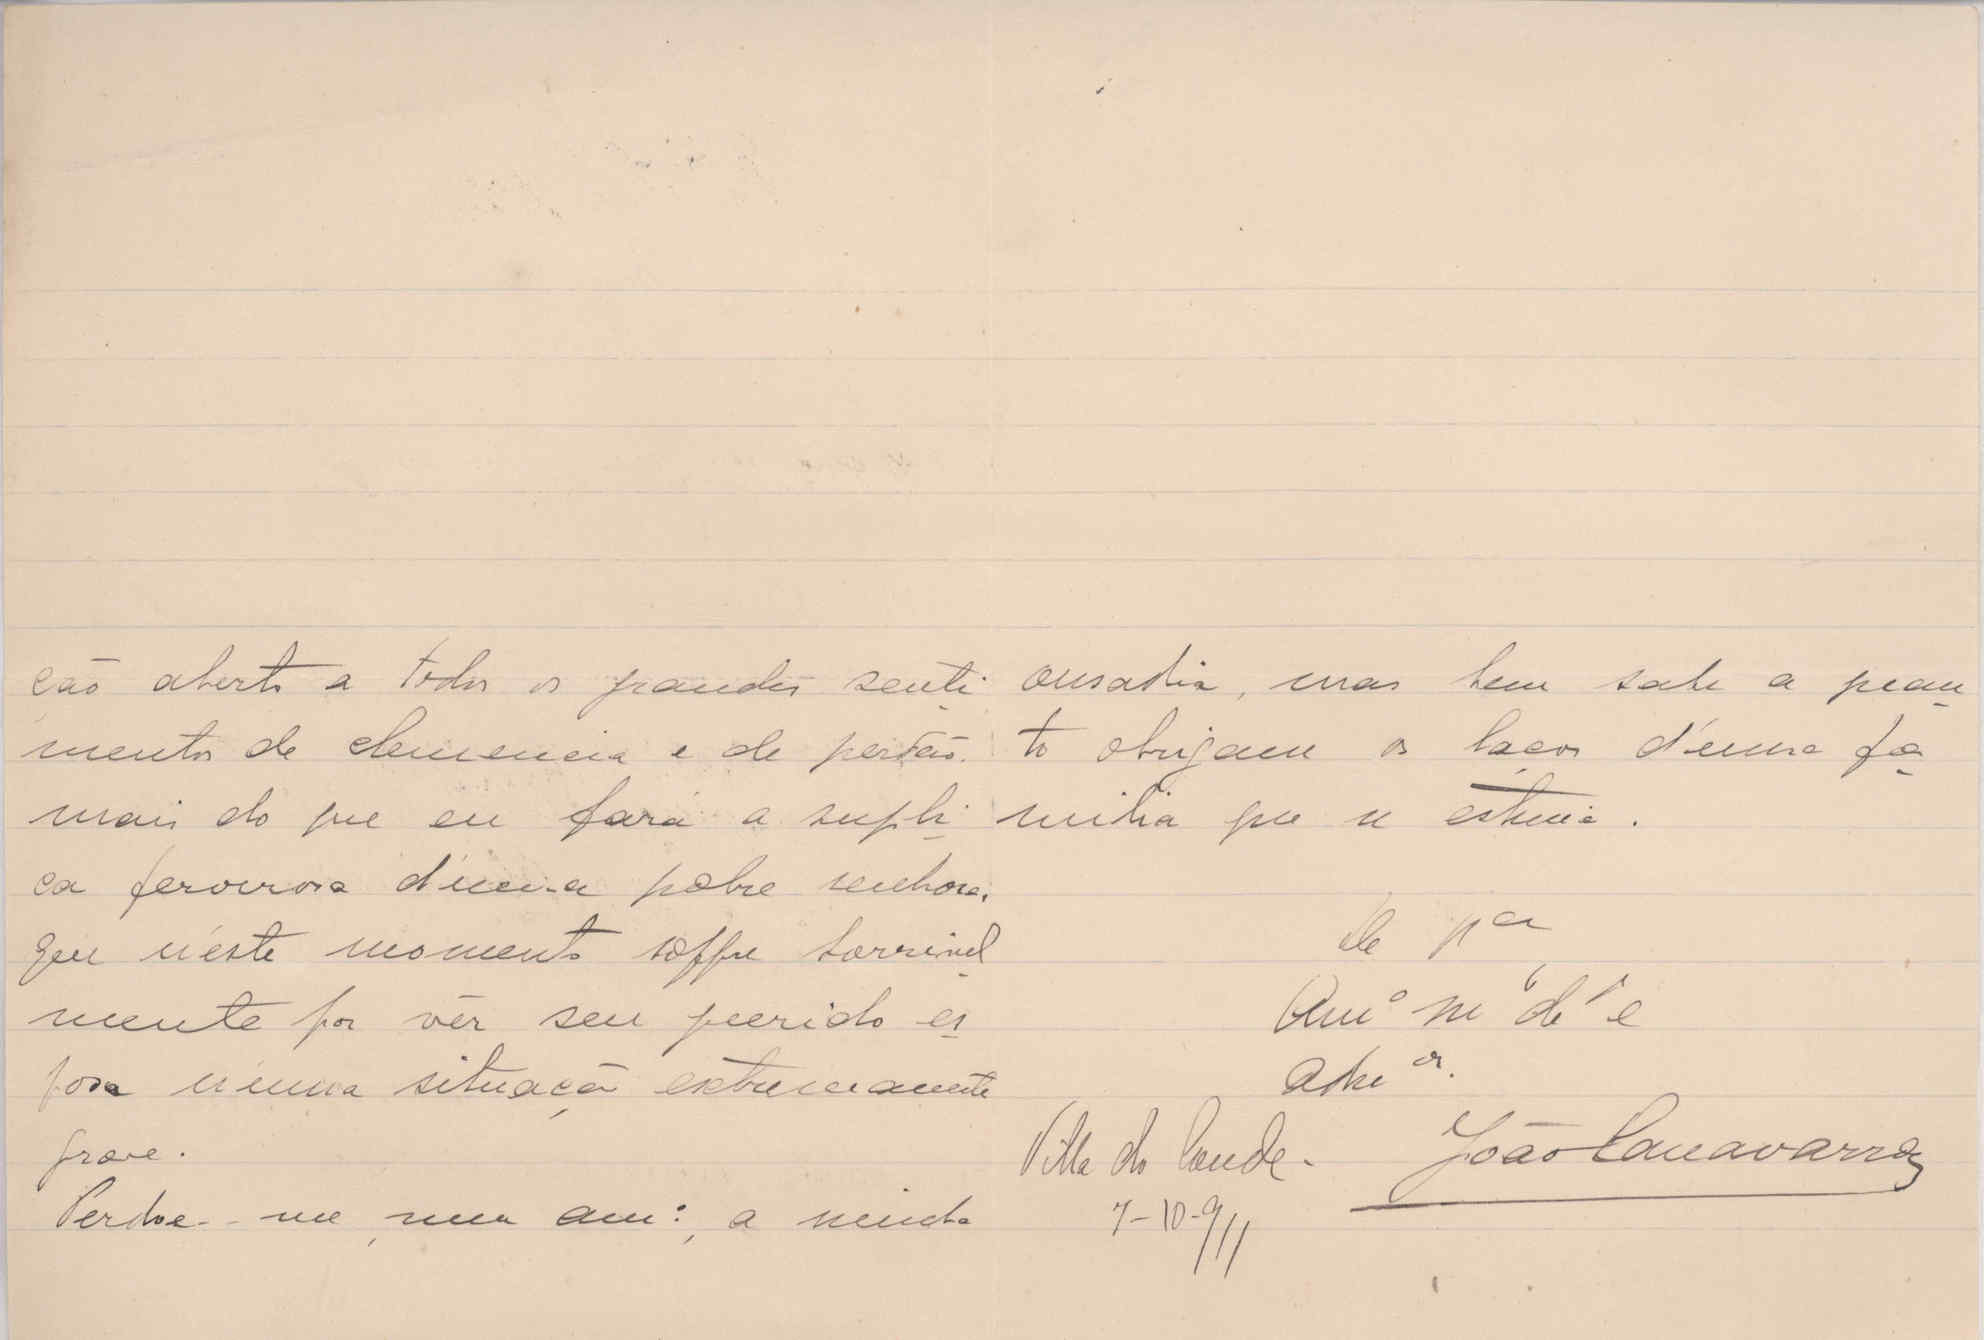 ção aberto a todos os grandes senti
mentos de clemencia e de perdão.
mais do que eu fará a supli
ca fervorosa d'uma pobre senhora,
que n'este momento soffre horrivel
mente por vêr seu querido es
poso n'uma situação extremamente
grave.
Perdoe-me, meu am:, a minha
ousadia, mas bem sabe a quan
to obrigam os laços d'uma fa
milia que se estima.
De V.
Am.º m.º de
Villa do Conde. João Canavarro
7-10-911